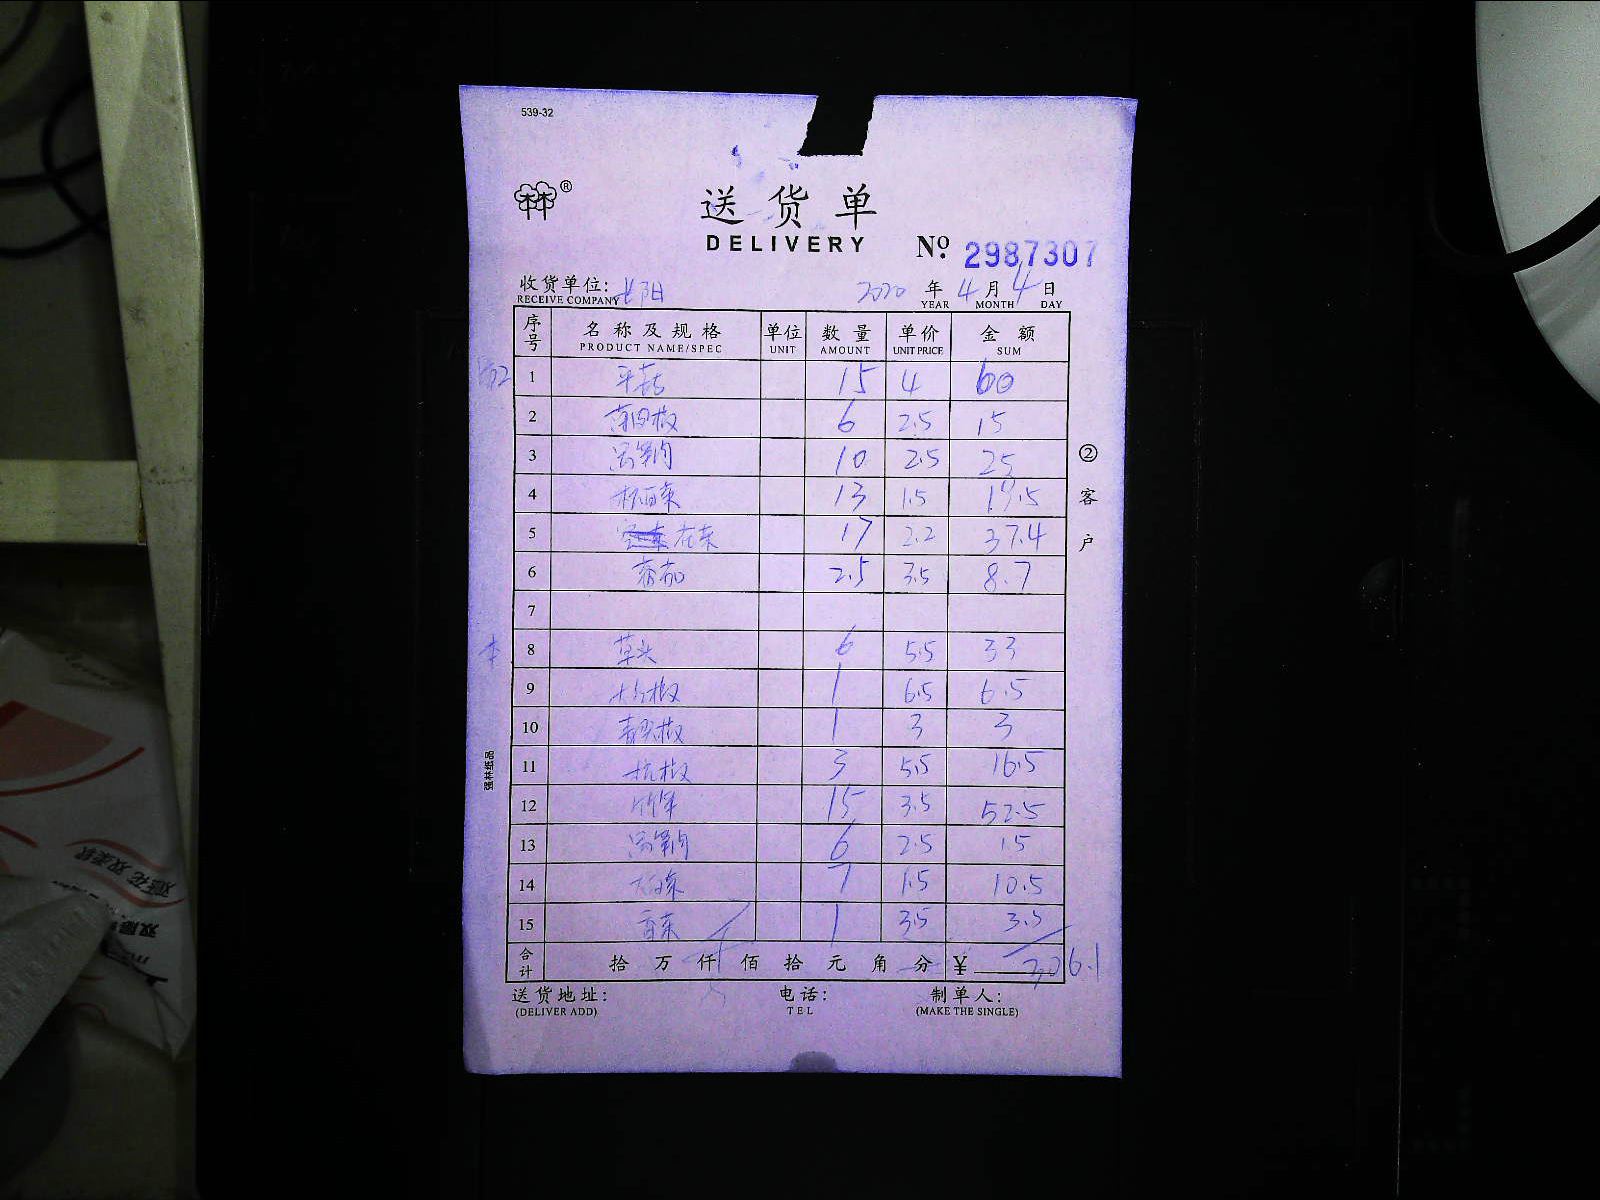 539-32
林林®
送货单
DELIVERY № 2987307
收货单位: 长阳 2020 年 4 月 4 日
RECEIVE COMPANY YEAR MONTH DAY
序号 名称及规格 单位 数量 单价 金额
PRODUCT NAME/SPEC UNIT AMOUNT UNIT PRICE SUM
1 平菇 15 4 60
2 6 2.5 15
3 莴笋肉 10 2.5 25
4 杭白菜 13 1.5 19.5
5 花菜 17 2.2 37.4
6 蕃茄 2.5 3.5 8.7
7
8 草头 6 5.5 33
9 杭椒 1 6.5 6.5
10 青尖椒 1 3 3
11 杭椒 3 5.5 16.5
12 15 3.5 52.5
13 莴笋肉 6 2.5 15
14 大白菜 7 1.5 10.5
15 香菜 1 3.5 3.5
合计 拾 万 仟 佰 拾 元 角 分 ¥ 306.1
送货地址: 电话: 制单人:
(DELIVER ADD) TEL (MAKE THE SINGLE)
②客户
强林纸品